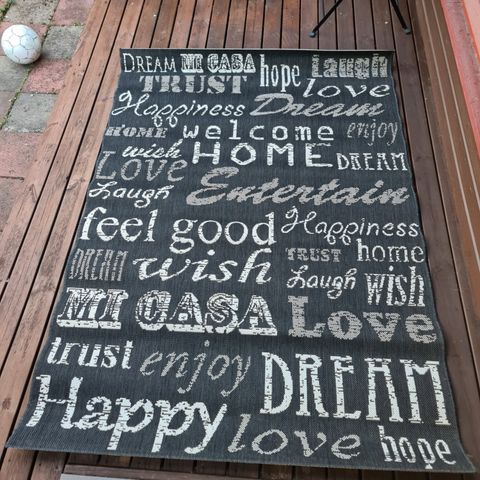 DREAM MI CASA hope Laugh
TRUST love
Happiness Dream
HOME welcome enjoy
wish HOME DREAM
LOVE
Laugh Entertain
feel good Happiness
TRUST home
DREAM wish Laugh wish
MI CASA Love
trust enjoy DREAM
Happy love hope